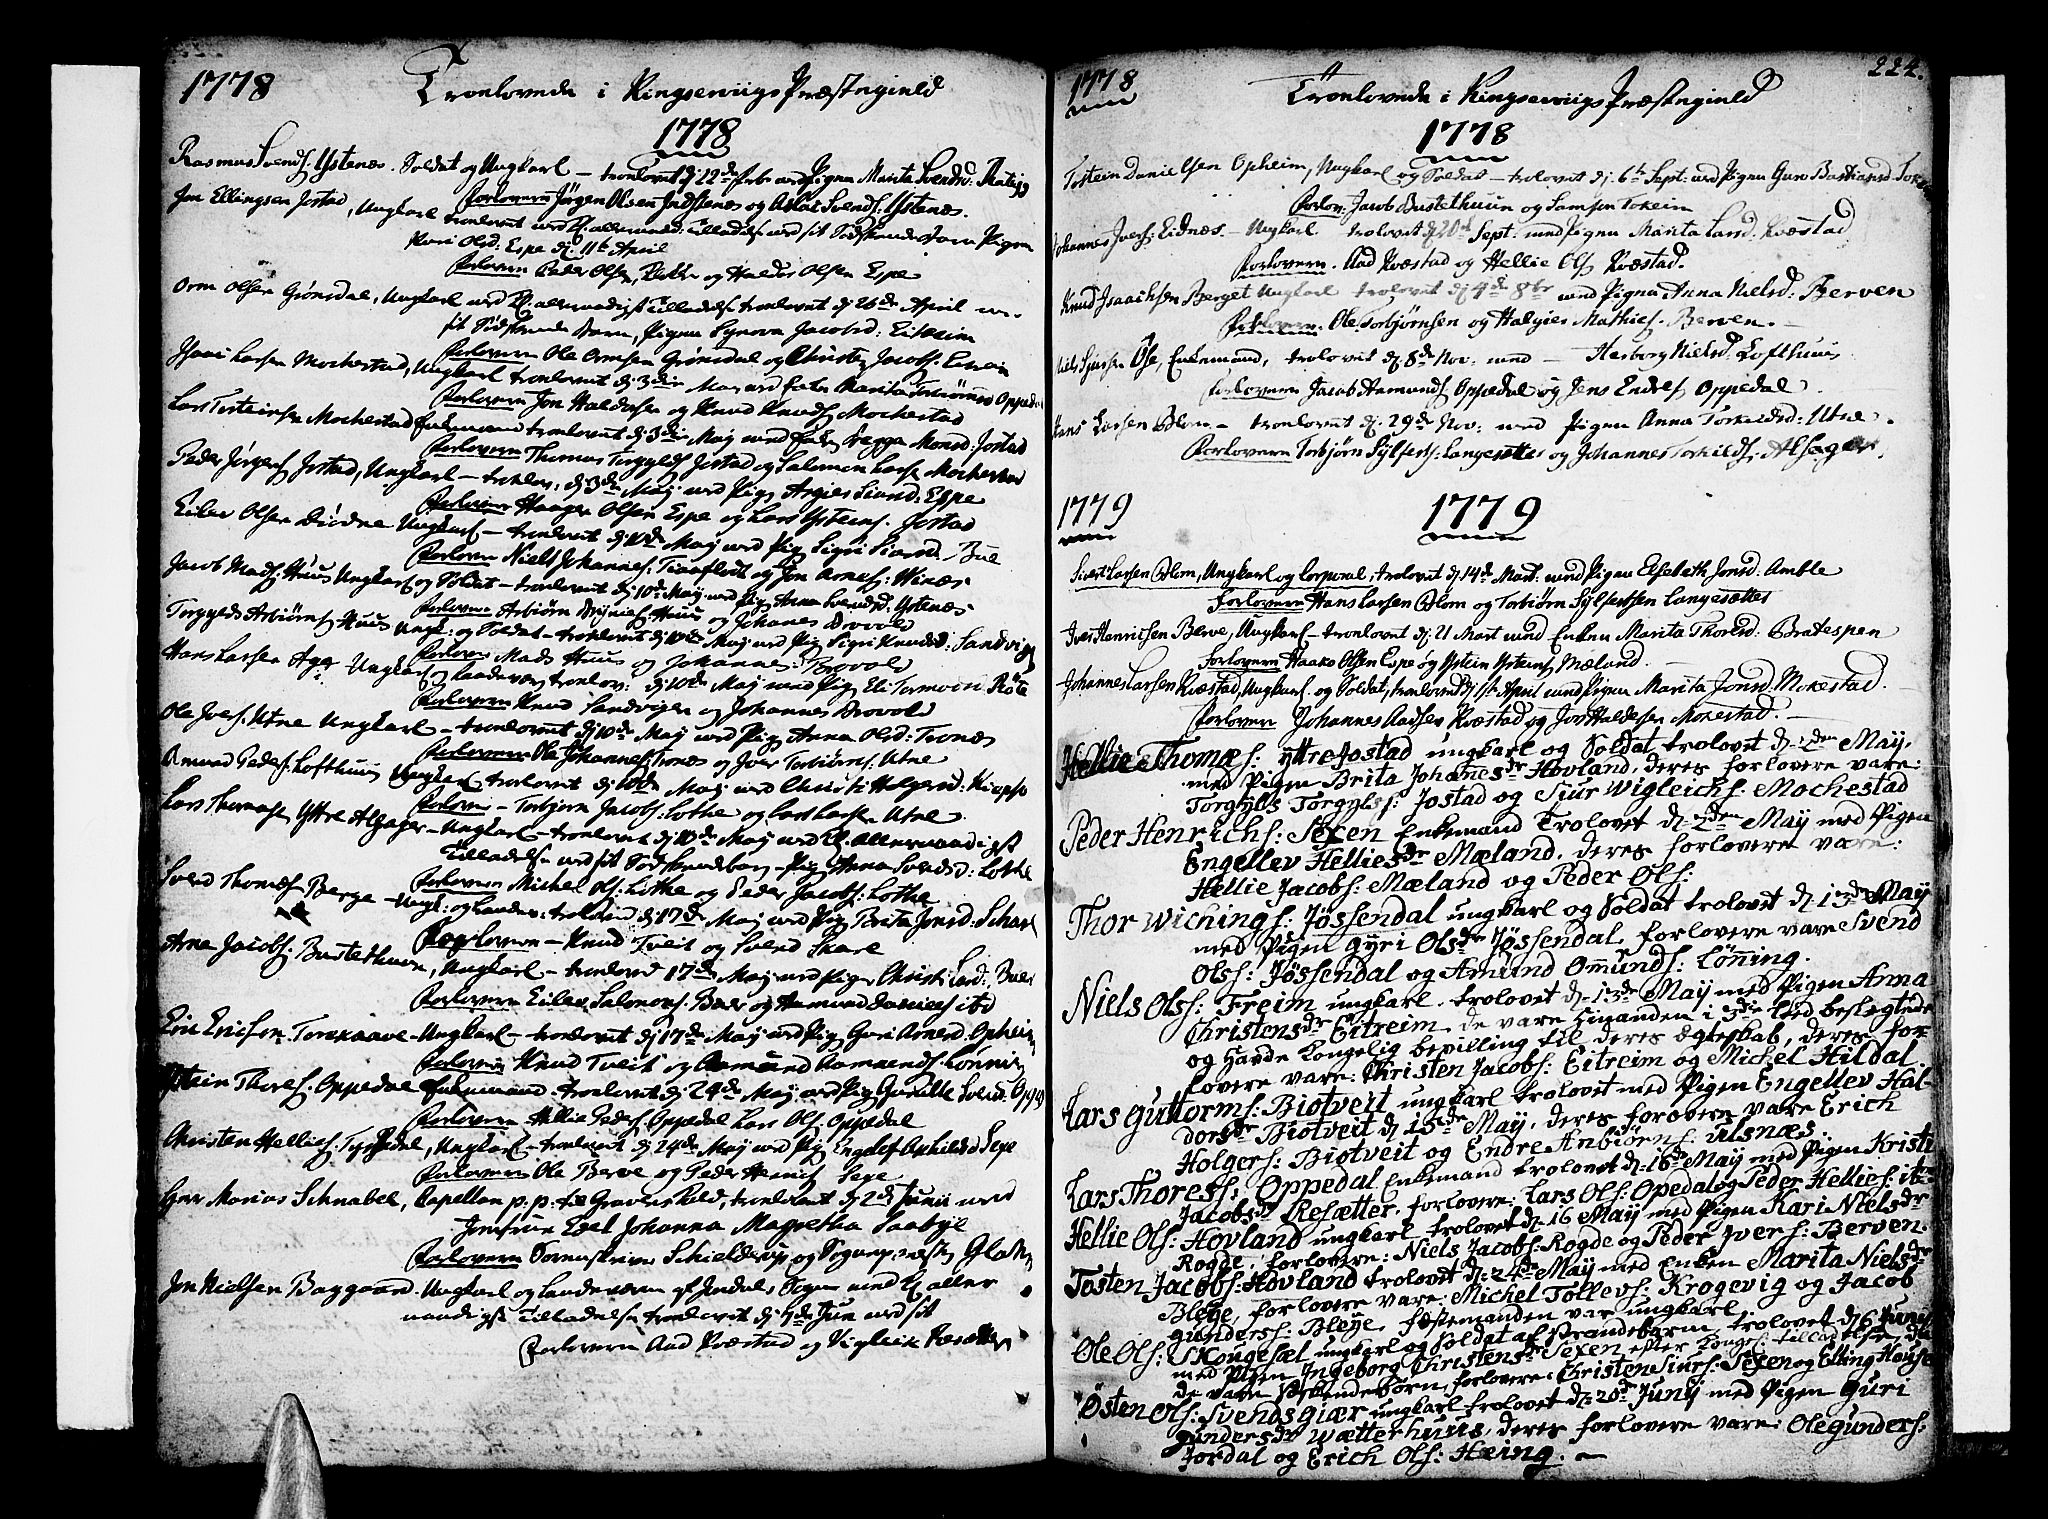 1778 Troelovede i Kingserviigs Præstegield
1778
Rasmus Svends: Ystenæs. Soldat og Ungkarl – troelovet d 22de Febr med Pigen Marita Svendsd:
Forlovern Jörgen Olsen Indstenæs og Aslac Svends: Ystenæs.
Jon Ellingsen Jostad, Ungkarl troelovet med allernaad: Tilladelse med sit Södskende Barn Pigen
Kari Olsd: Espe d 11te April
Forlovern Peder Olsen og Haldor Olsen Espe
Orm Olsen Grönsdal, Ungkarl med allernaadigst Tilladelse troelovet d 26de April m
sit Södskende Barn, Pigen Synova Jacobsd: Eitreim
Forlovern Ole Ormsen Grönsdal og Christen Jacobs: Eitreim
Isaac Larsen Mochestad, Ungkarl troelovet d 3die Maj med Enken Marita Torbiörnsd Oppedal
Forlovern Jon Haldorsen og Knud Knuds: Mochestad
Lars Torsteinsen Mochestad Enkemand troelovet d 3die Maj med Enken Monsd: Jostad
Forlovern Thomas Torgyls: Jostad og Salomon Larsen Mochestad
Peder Jörgens: Jostad, Ungkarl – troelov: d 3die Maj med Pig: Siursd: Espe
Forlovern Haagen Olsen Espe og Lars Ysteins: Jostad
Eilev Olsen Ungkarl – troelovet d 10de Maj med Pig: Sigri Siursd: Bue
Forlovern Niels Johannes: Tiaaflodt og Jon Arnes: Winæs
Jacob Mads: Huus Ungkarl og Soldat – troelovet d 10de Maj med Pig: Anna Svendsd: Ystenæs
Forlovern Arbiörn Huus og Johanes Brovold
Torgyls Arbiörns: Huus Ungk: og Soldat – troelovet d 10de Maj med Pig: Sigri Knudsd: Sandvigen
Forlovern Mads Huus og Johannes: Brovold
Hans Larsen Aga Ungkarl og Landeværn troelov: d 10de Maj med Pig: Eli Tormodsd: Röte
Forlovern Knud Sandvigen og Johannes Brovold
Ole Ivers: Utne Ungkarl – troelovet d 10de Maj med Pig: Anna Olsd: Tronæs
Forlovern Ole Johannes: Tronæs og Iver Torbiörns: Utne
Omund Peders: Lofthuus Ungkarl troelovet d 10de Maj med Christi Holgersd:
Forlovern – Torbjörn Jacobs: Lothe og Lars Larsen Utne.
Lars Thomasen Yttre Alsager – Ungkarl – troelovet d 10de Maj med Allernaadigst
Tilladelse med sit Södskendebarn – Pig: Anna Svendsd: Lothe
Forlovern Michel Ols: Lothe og Peder Jacobs: Lothe
Svend Thomæs: Berge – Ungk: og Landev: troelovet d 17de Maj med Pig: Brita Jonsd: Skare
Forlovern – Knud Tveit og Svend Skare
Arne Jacobs: Bustethuun, Ungkarl – troelovet 17de Maj med Pigen Christi Larsd: Buer
Forlovern Eilev Salomons: Buer og Aamund Daniels: ibd
Eric Ericsen Torekaave – Ungkarl – troelovet d 17de Maj med Pig: Guri Arnesd: Opheim
Forlovern Knud Tveit og Aamund Aamunds: Lönning
Ystein Thores: Oppedal Enkemand – troelovet d 24de Maj med Pig: Gunilde Svensd: Oppedal
Forlovern – Hellie Peders: Oppedal Lars Ols: Oppedal
Christen Hellies: Tyssedal, Ungkarl – troelovet d 24de Maj med Pig: Engelef Aschildsd Sexe
Forlovern Ole Berve og Peder Henrics: Sexe
Herr Marcus Schnabel, Capellan p. p. til Graven Kald, troelovet d 2de Junii med
Jomfrue Edel Johanna Magretha Saabye
Forlovern Sorenskriver Schielderup og Sogne præsten
Jon Nielsen Baggaard. Ungkarl og Landeværn af Jondals Sogn med aller
naadigst Tilladelse troelovet d 7de Jun med sit
Forlovern Aad Kvæstad og Vigleik Resætter
1778 Troelovede i Kingserviigs Præstegield 224.
1778
Tostein Danielsen Opheim, Ungkarl og Soldat – trolovet d. 6te Sept: med Pigen Guro Bastiansd
Forlov: Jacob Bustethuun og Samson Tokeim
Johannes Ivers: Eidnes – Ungkarl trolovet d 20de Sept: med Pigen Marita Larsd: Kvæstad
Forlovern. Aad Kvæstad og Hellie Ols: Kvæstad.
Knud Isaachsen Berget Ungkarl trolovet d 4de 8br med Pigen Anna Nielsd: Berven
Forlovern: Ole Torbjörnsen og Mathies: Berven. –
Niels Siursen Öse, Enkemand, trolovet d 8de Nov: med – Herborg Nielsd: Lofthuus
Forlovern Jacob Aamunds: Oppedal og Jens Endres: Oppedal.
Hans Larsen Blom – troelovet d. 29de Nov: med Pigen Anna Torkildsd: Utne.
Forlovern Torbjörn Sylfests: Langesætter og Johannes Torkilds: Alsager.
1779 1779
Sivert Larsen Blom, Ungkarl og Corporal, trolovet d 14de Mart: med Pigen Elsebeth Jonsd: Amble
Forlovern Hans Larsen Blom og Torbiörn Sylfestsen Langesætter
Iver Henricsen Berve, Ungkarl – troelovet d. 21 Mart med Enken Marita Thorsd: Bratespen
Forlovern Haako Olsen Espe og Ystein Ysteins: Mæland.
Johannes Larsen Kvæstad, Ungkarl og Soldat, troelovet d 1st April med Pigen Marita Jonsd: Mokestad.
Forlovern Johannes Aadsen Kvæstad og Jon Haldorsen Mokestad. –
Hellie Thomæs: yttre Jostad ungkarl og Soldat trolovet d: 2den May,
med Pigen Brita Johanesdr Hovland, deres forlovere vare:
Torgyls Torgyls: Jostad og Siur Wigleichs: Mochestad
Peder Henrichs: Sexen Enkemand Trolovet d: 2den May med Pigen
Engellev Helliesdr Mæland, deres forlovere vare:
Hellie Jacobs: Mæland og Peder Ols:
Thor Wichings: Jössendal ungkarl og Soldat trolovet d. 13de May
med Pigen Gyri Olsdr Jössendal, forlovere vare Svend
Olss: Jössendal og Amund Omunds: Lönning.
Niels Olss: Freim ungkarl, trolovet d: 13de May med Pigen Anna
Christensdr Eitreim, de vare hinanden i 3die Led beslegtede
og havde kongelig bevilling til deres ægteskab, deres for
lovere vare: Christen Jacobs: Eitreim og Michel Hildal.
Lars Guttorms: Biotveit ungkarl trolovet med Pigen Engellev Hal-
dorsdr Biotveit d 15de May, deres forlovern vare Erich
Holgers: Biotveit og Endre Anbiörns: Ulsnæs.
Lars Thoress: Oppedal Enkemand trolovet d: 16de May med Pigen Kristi
Jacobsdr Resætter, forlovere: Lars Ols: Opedal og Peder Hellies: ib
Hellie Ols: Hovland ungkarl trolovet d 16 May med Pigen Kari Nielsdr
Rogde, forlovere: Niels Jacobs: Rogde og Peder Ivers: Berven.
Tosten Jacobs: Hovland trolovet d: 24de May med Enken Marita Nielsdr
Bleye, forlovere vare: Michel Tollevs: Krogevig og Jacob
Gunders: Bleye, fæstemanden var ungkarl
Ole Ols: Skougesæl ungkarl og Soldat af Strandebarm trolovet d 6 Junii
med Pigen Ingeborg Christensdr Sexen efter Konge: tilladelse, da
de vare Sködendebörn, forlovere: Christen Siurs: Sexen og Elling House
Östen Ols: Svends giær ungkarl trolovet d: 20de Junij med Pigen Guri
Gundersdr Wætterhuus, deres forlovere vare: Ole Gunders:
Jordal og Erich Ols: Hæing. –